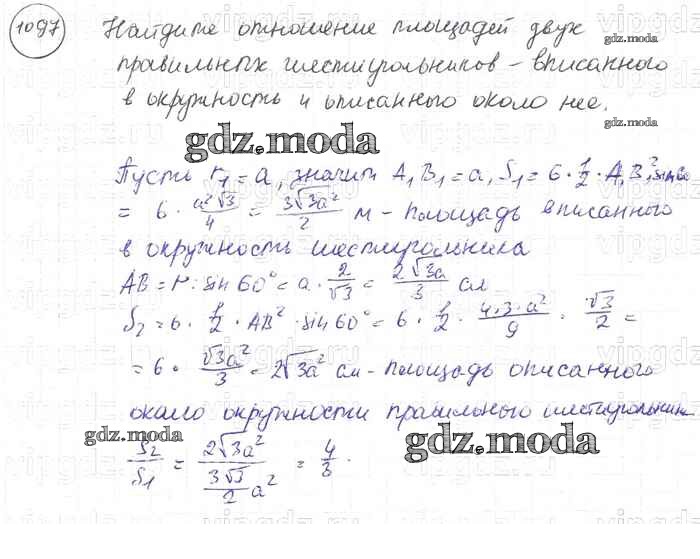 1097 Найдите отношение площадей двух
gdz.moda
правильных шестиугольников - вписанного
в окружность и описанного около нее.
gdz.moda
Пусть r₁ = a, значит A₁B₁ = a, S₁ = 6 · 1/2 · A₁B₁² sin 60
= 6 · a²√3/4 = 3√3a²/2 м - площадь вписанного
в окружность шестиугольника
AB = r : sin 60° = a · 2/√3 = 2√3a/3 см
S₂ = 6 · 1/2 · AB² · sin 60° = 6 · 1/2 · 4·3·a²/9 · √3/2 =
= 6 · √3a²/3 = 2√3a² см - площадь описанного
около окружности правильного шестиугольник
gdz.moda
gdz.moda
S₂/S₁ = 2√3a² / (3√3/2 a²) = 4/3.